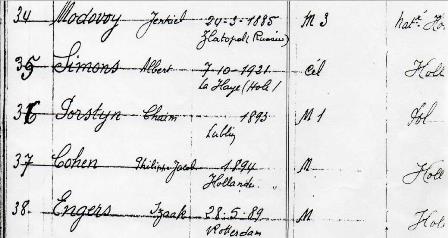 34 Modovoy Jerkiel 24-3-1885 M 3 nat. Ho
Zlatopol (Russie)
35 Simons Albert 7-10-1921 Cél Holl
La Haye (Holl)
36 Gorstyn Chaim 1893 M 1 Pol
Lublin
37 Cohen Philippe Jacob 1894 M Holl
Hollande
38. Engers Izaak 28-5-89 M Ho
Rotterdam